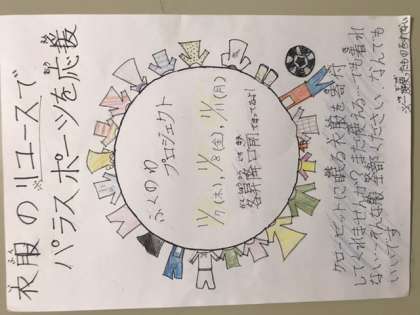 衣服の※リユースで
パラスポーツを応援
ふくのわ
プロジェクト
11/7(木), 11/8(金), 11/11(月)
各昇降口前で待ってるよ!
クローゼットに眠る衣服を寄付
してくれませんか?まだ使える…でも着れ
ない…そんな服全部ください!なんでも
いいです